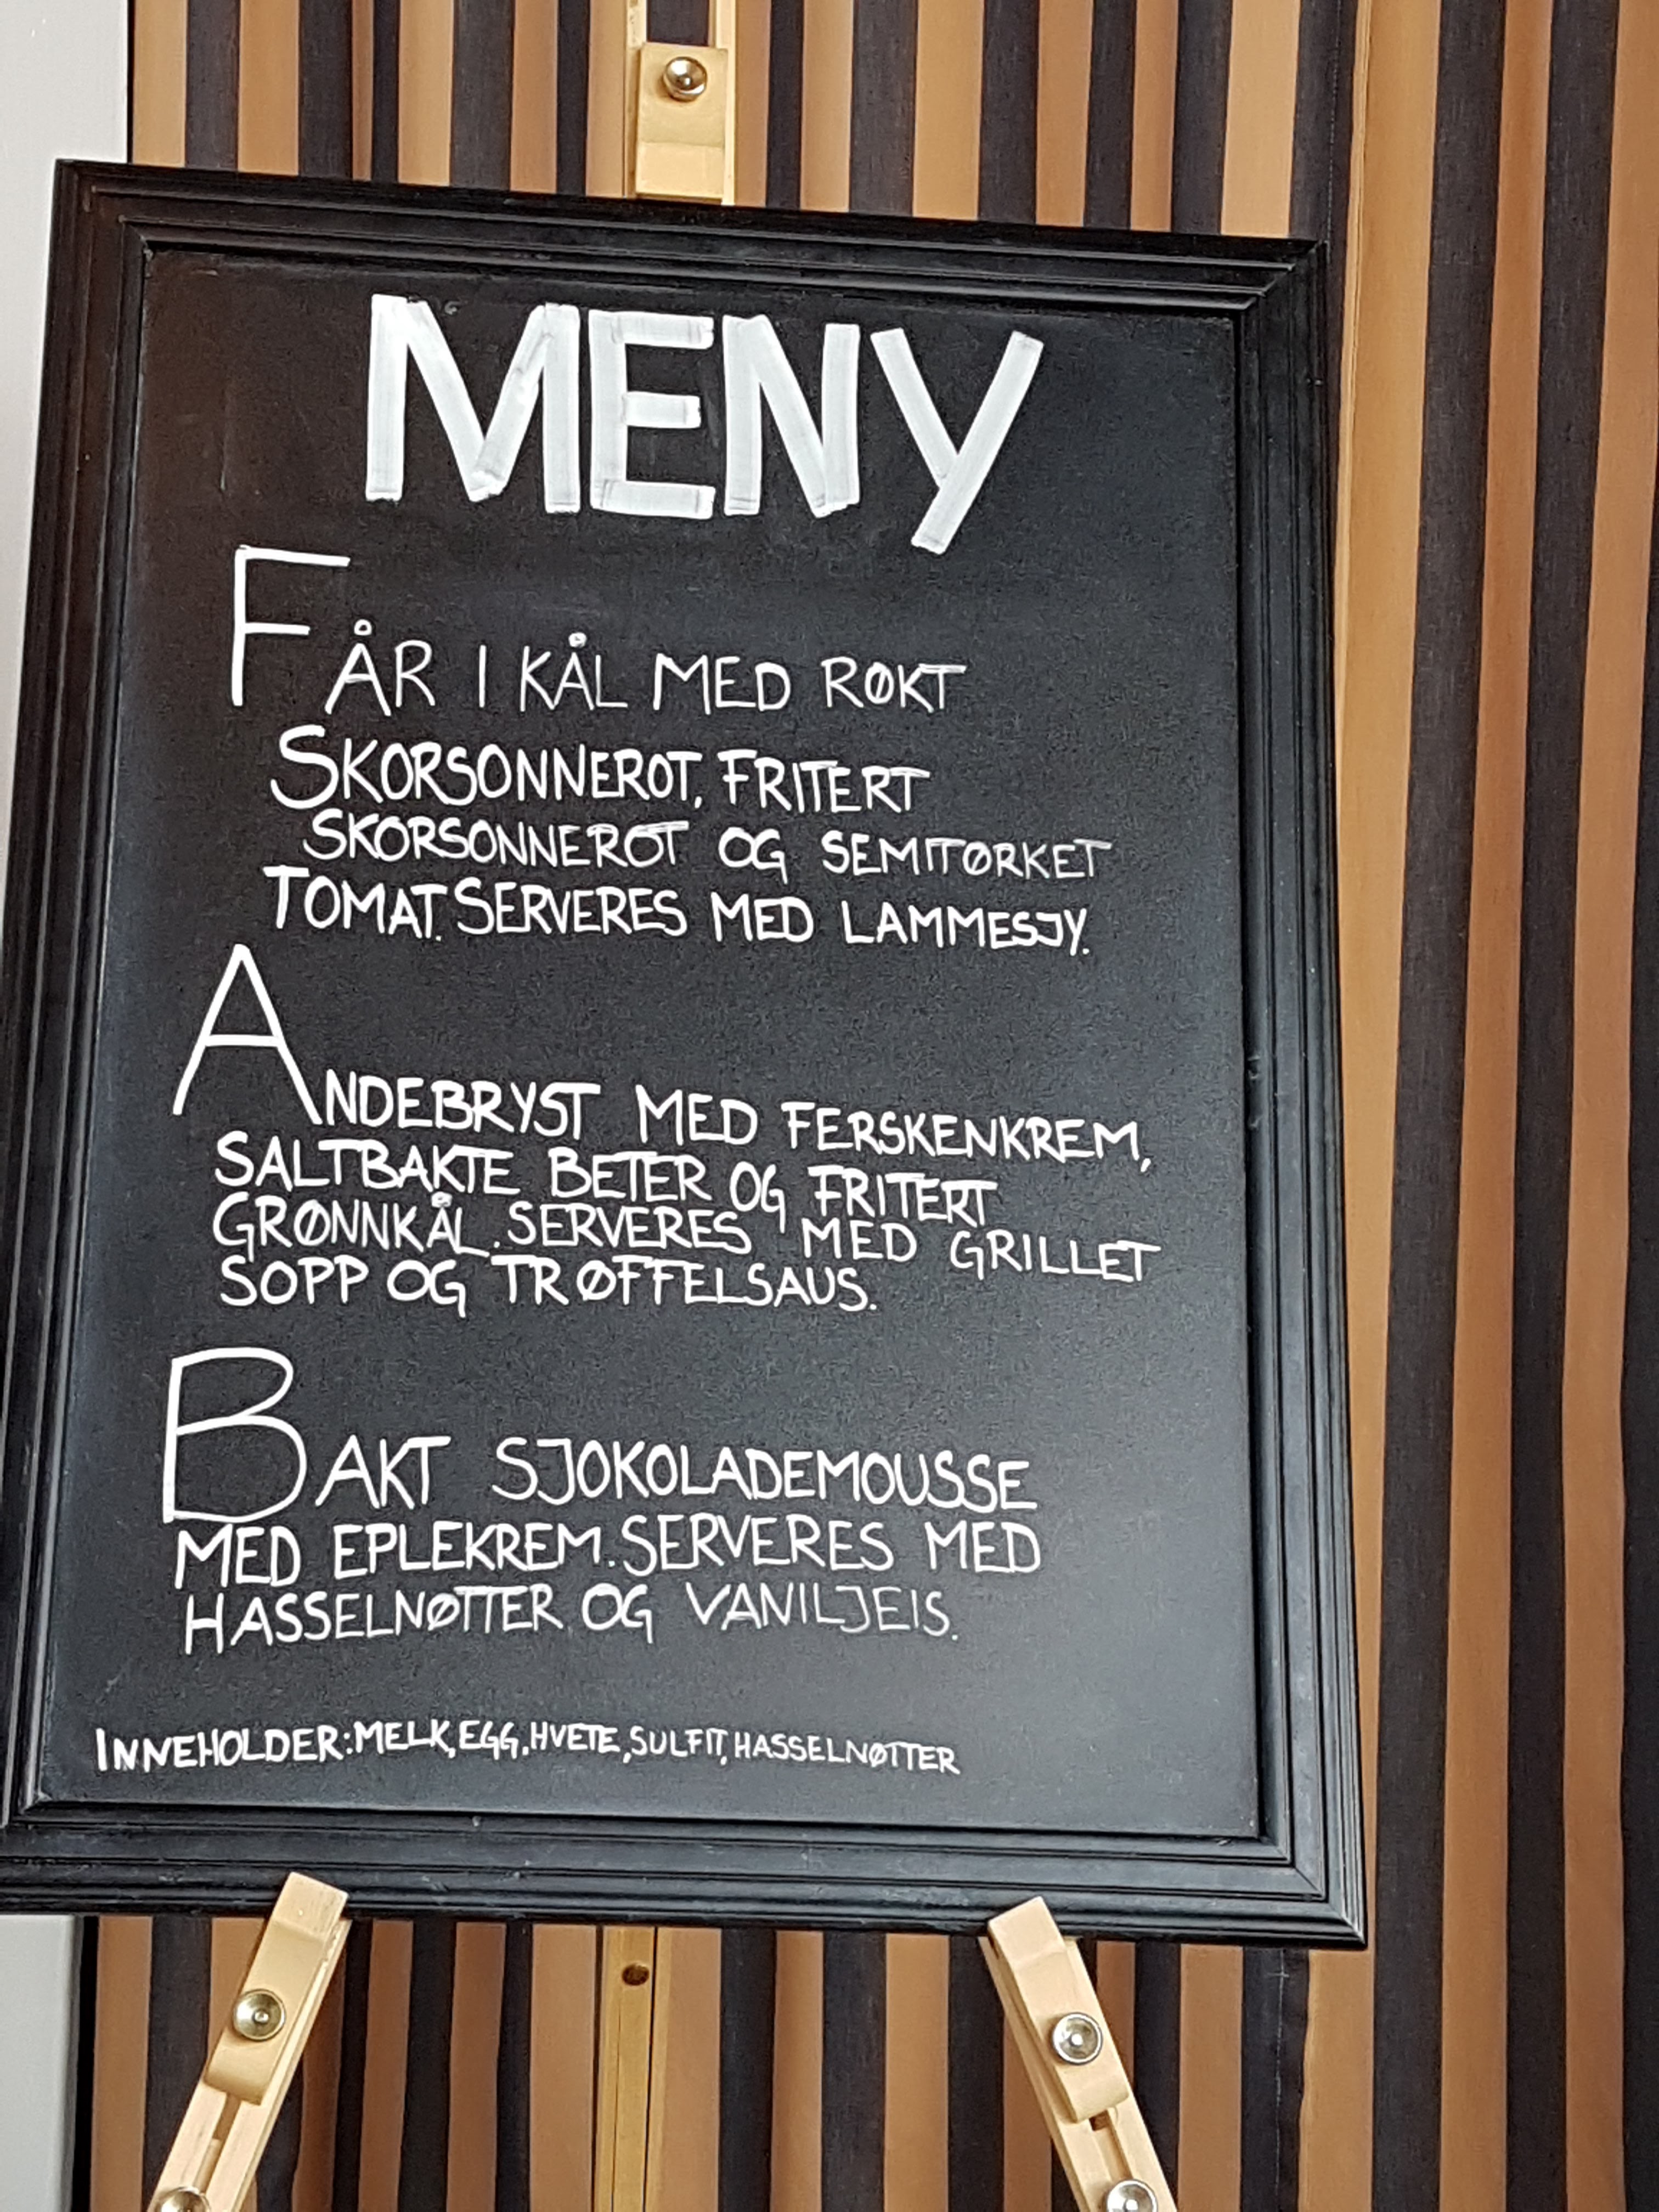 MENY
FÅR I KÅL MED RØKT
SKORSONNEROT, FRITERT
SKORSONNEROT OG SEMITØRKET
TOMAT. SERVERES MED LAMMESJY.
ANDEBRYST MED FERSKENKREM,
SALTBAKTE BETER OG FRITERT
GRØNNKÅL. SERVERES MED GRILLET
SOPP OG TRØFFELSAUS.
BAKT SJOKOLADEMOUSSE
MED EPLEKREM. SERVERES MED
HASSELNØTTER OG VANILJEIS.
INNEHOLDER: MELK, EGG, HVETE, SULFIT, HASSELNØTTER